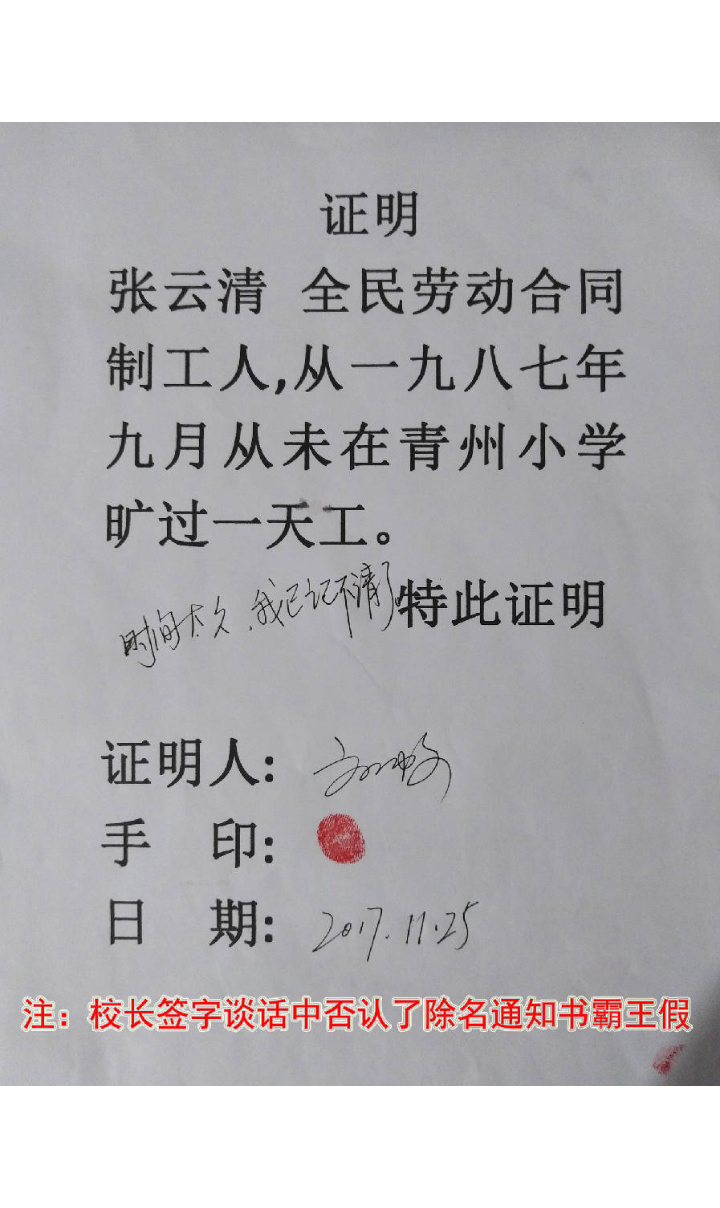 证明
张云清 全民劳动合同
制工人,从一九八七年
九月从未在青州小学
旷过一天工。
时间太久,我已记不清了。特此证明
证明人:
手 印:
日 期: 2017.11.25
注：校长签字谈话中否认了除名通知书霸王假